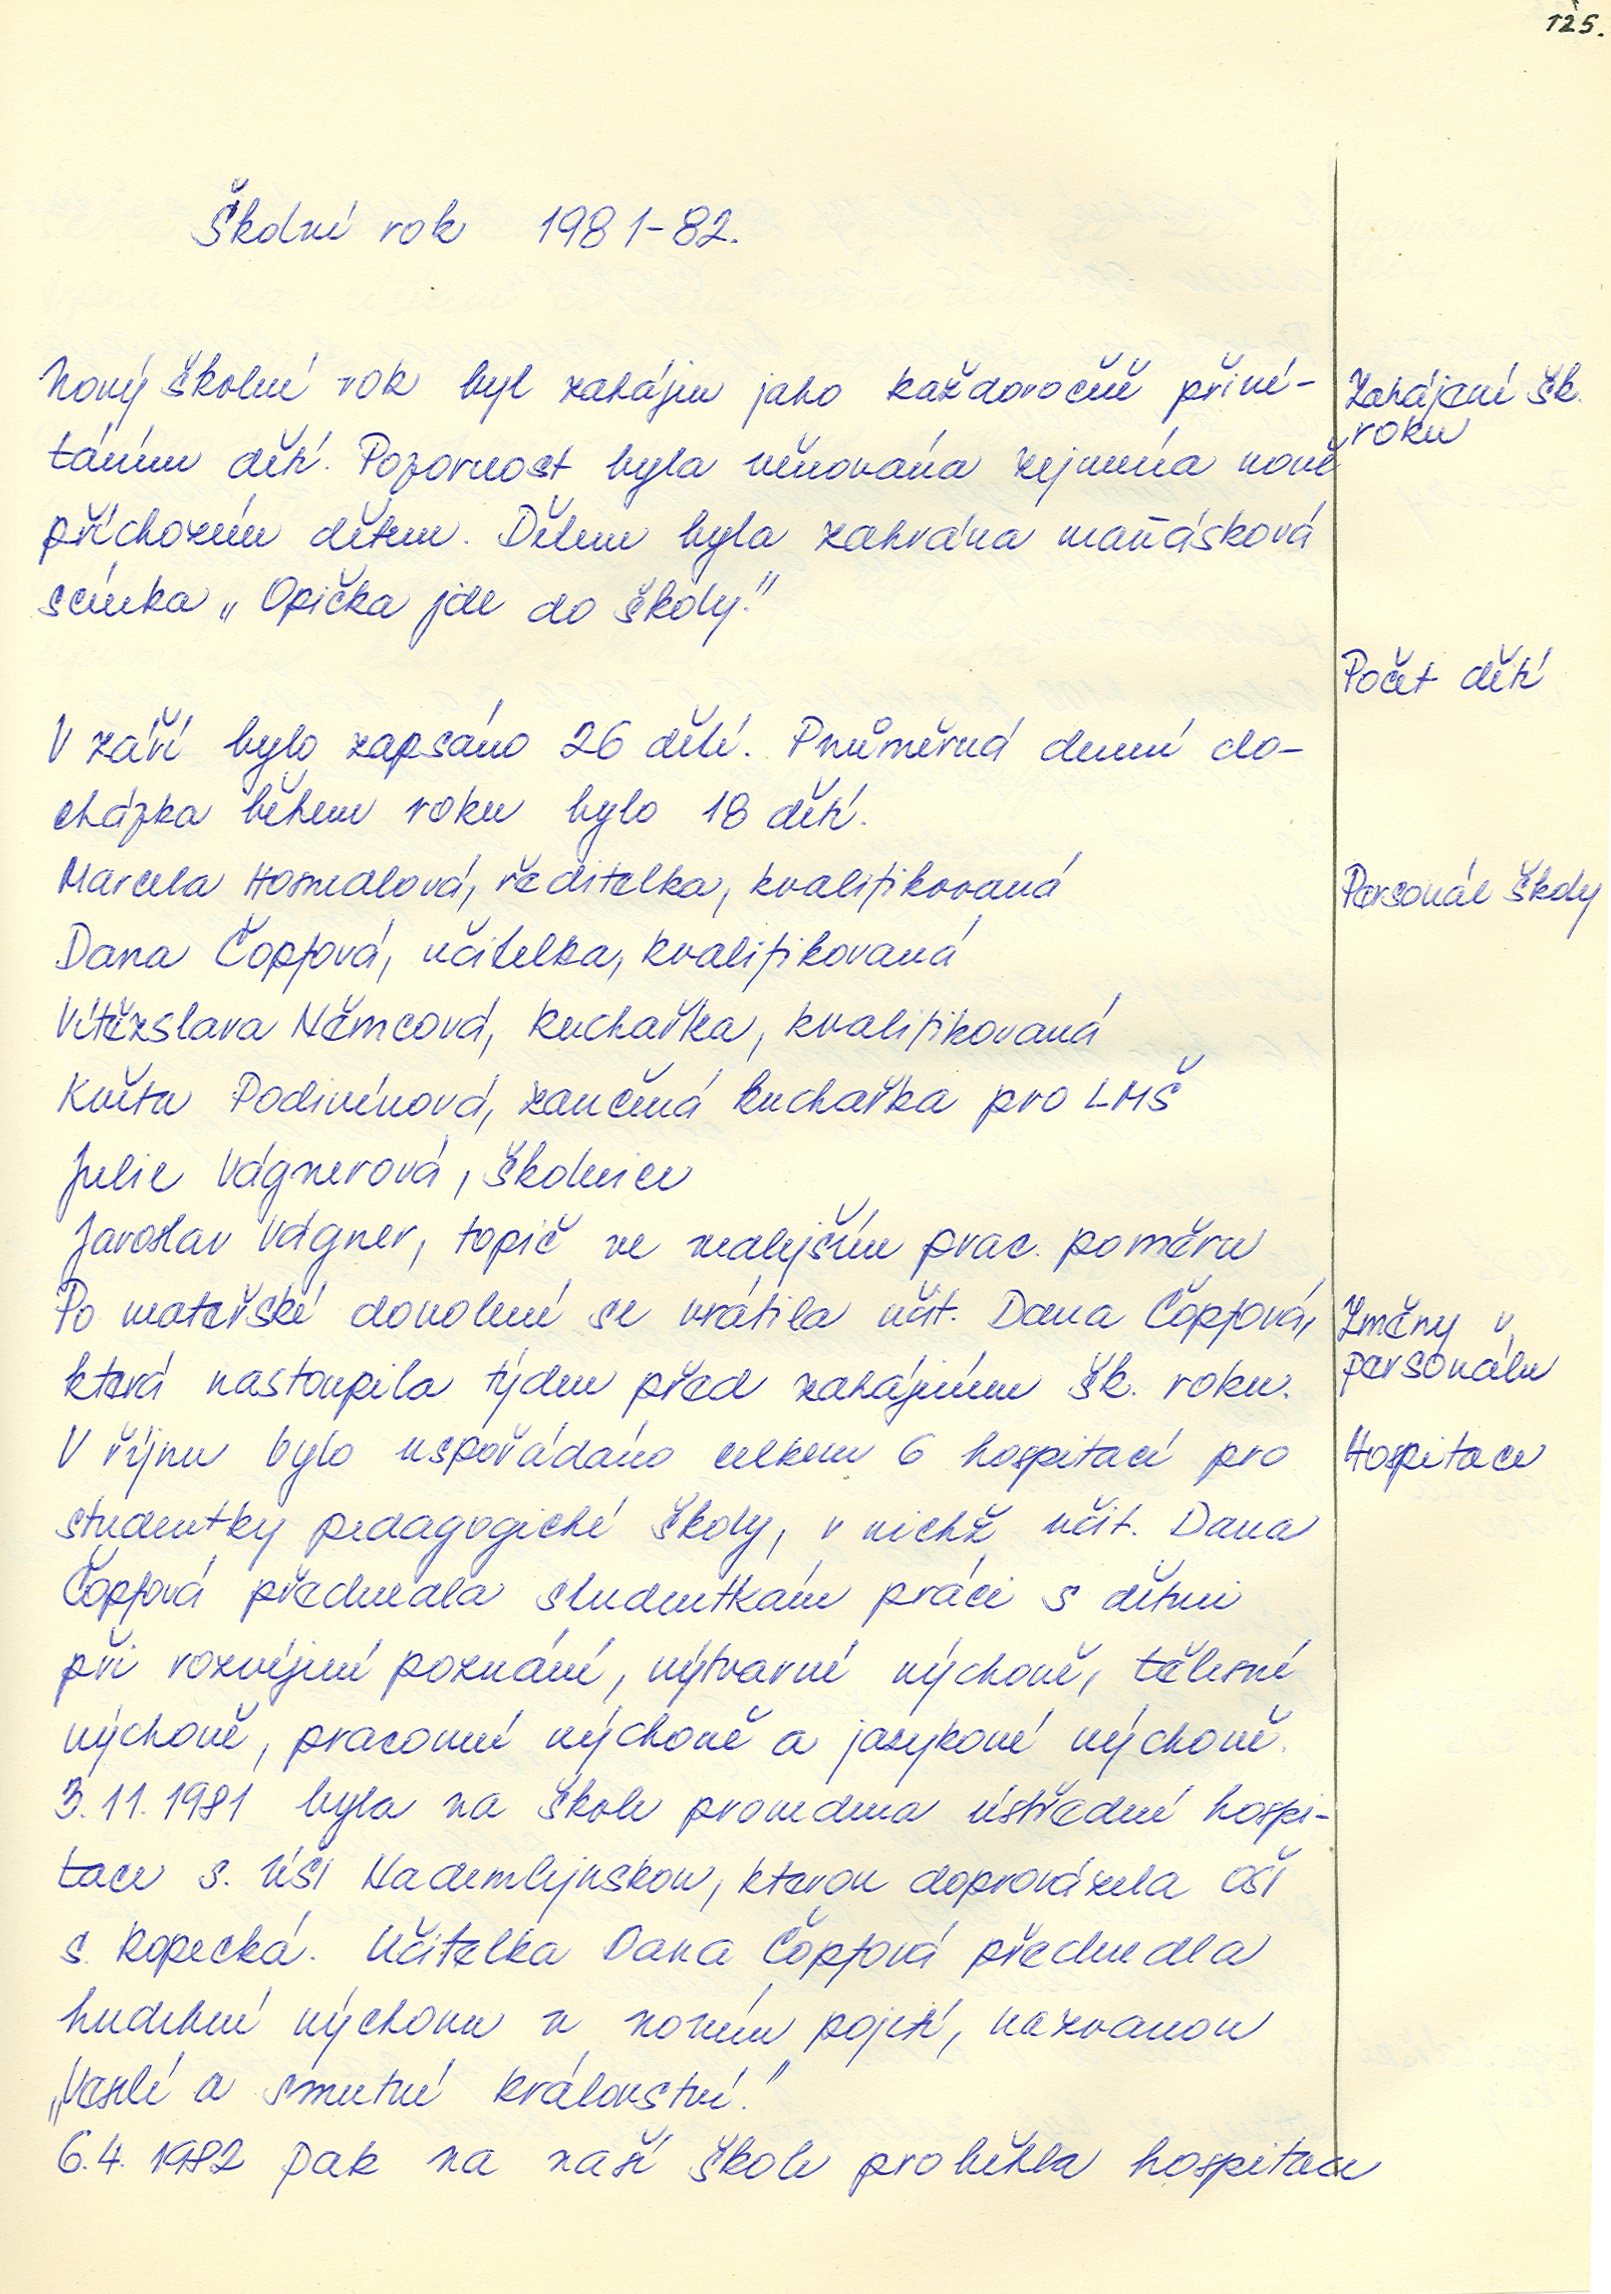 125.
Školní rok 1981-82.
Nový školní rok byl zahájen jako každoročně přiví-
Zahájení šk.
roku
táním dětí. Pozornost byla věnována zejména nově
příchozím dětem. Dětem byla zahrána maňásková
scénka „Opička jde do školy."
Počet dětí
V září bylo zapsáno 26 dětí. Průměrná denní do-
cházka během roku bylo 18 dětí.
Marcela Hosnedlová, ředitelka, kvalifikovaná
Personál školy
Dana Čopfová, učitelka, kvalifikovaná
Vítězslava Němcová, kuchařka, kvalifikovaná
Květa Podivínová, zaučená kuchařka pro LMŠ
Julie Vágnerová, školnice
Jaroslav Vágner, topič ve vedlejším prac. poměru
Po mateřské dovolené se vrátila učit. Dana Čopfová,
Změny v
personálu
která nastoupila týden před zahájením šk. roku.
V říjnu bylo uspořádáno celkem 6 hospitací pro
Hospitace
studentky pedagogické školy, v nichž učit. Dana
Čopfová předvedla studentkám práci s dětmi
při rozvíjení poznání, výtvarné výchově, tělesné
výchově, pracovní výchově a jazykové výchově.
3.11.1981 byla na škole provedena ústřední hospi-
tace s. ÚŠI Nademlejnskou, kterou doprovázela OŠI
s. Kopecká. Učitelka Dana Čopfová předvedla
hudební výchovu v novém pojetí, nazvanou
„Veselé a smutné království."
6.4.1982 pak na naší škole proběhla hospitace